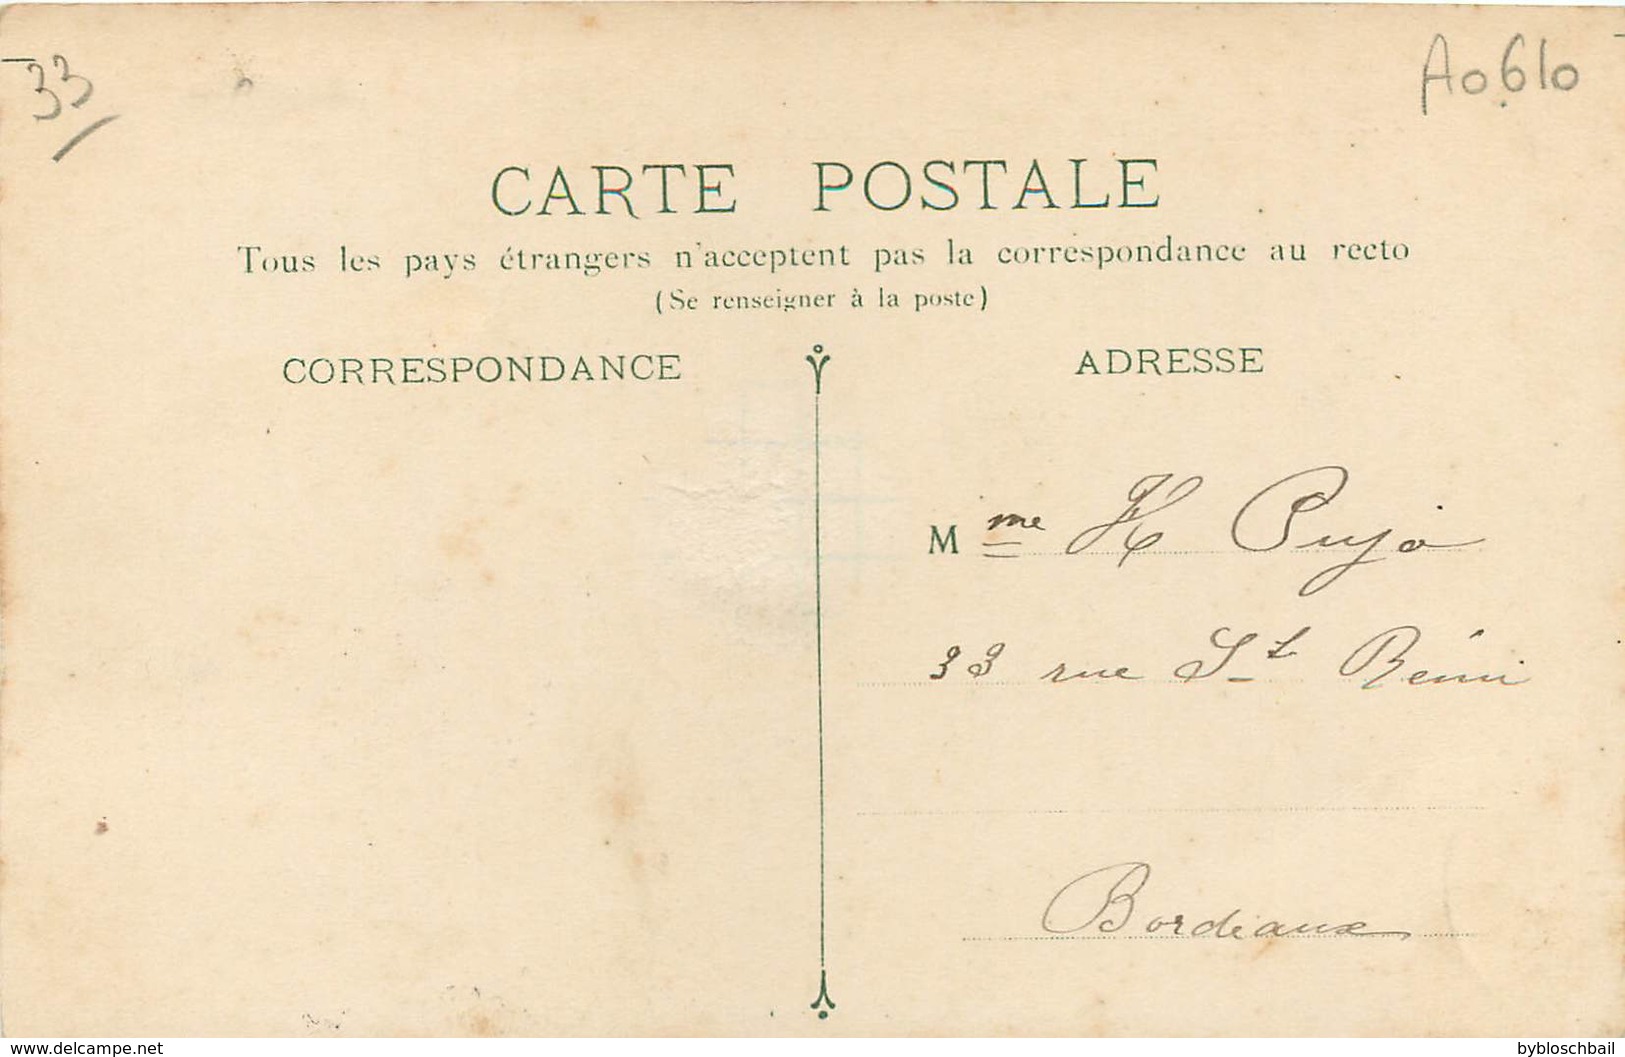 33
A0610
CARTE POSTALE
Tous les pays étrangers n'acceptent pas la correspondance au recto
(Se renseigner à la poste)
CORRESPONDANCE
ADRESSE
Mme H Pujo
33 rue St Rémi
Bordeaux
www.delcampe.net
bybloschbail